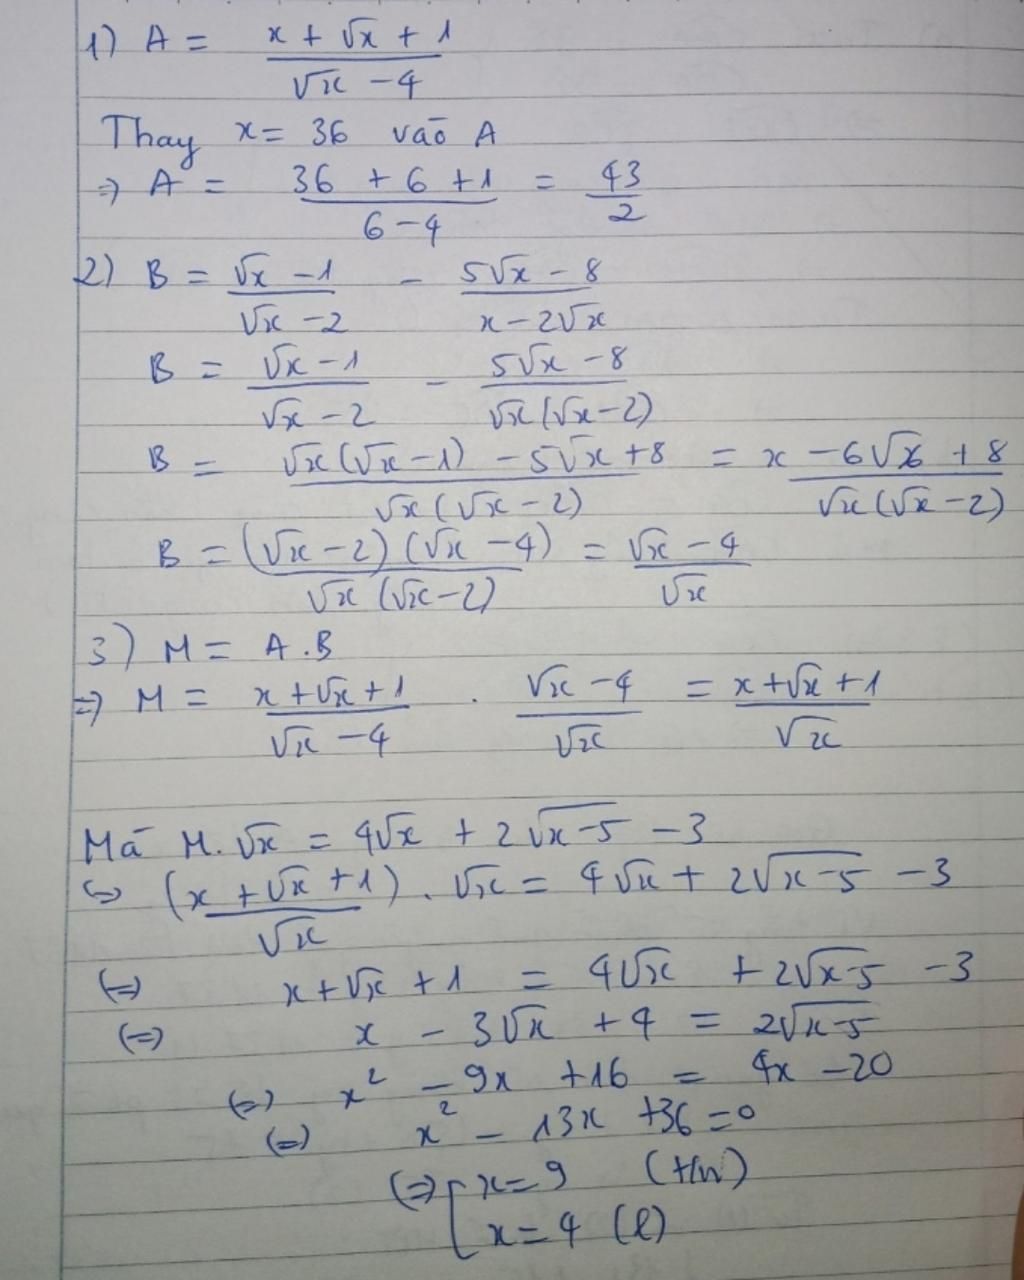 1) A = (x + √x + 1)/(√x - 4)
Thay x = 36 vào A
=> A = (36 + 6 + 1)/(6 - 4) = 43/2
2) B = (√x - 1)/(√x - 2) - (5√x - 8)/(x - 2√x)
B = (√x - 1)/(√x - 2) - (5√x - 8)/(√x(√x - 2))
B = (√x(√x - 1) - 5√x + 8)/(√x(√x - 2)) = (x - 6√x + 8)/(√x(√x - 2))
B = ((√x - 2)(√x - 4))/(√x(√x - 2)) = (√x - 4)/√x
3) M = A.B
=> M = (x + √x + 1)/(√x - 4) . (√x - 4)/√x = (x + √x + 1)/√x
Mà M.√x = 4√x + 2√(x-5) - 3
<=> (x + √x + 1)/√x . √x = 4√x + 2√(x-5) - 3
<=> x + √x + 1 = 4√x + 2√(x-5) - 3
<=> x - 3√x + 4 = 2√(x-5)
<=> x² - 9x + 16 = 4x - 20
<=> x² - 13x + 36 = 0
<=> [ x = 9 (t/m)
x = 4 (l)